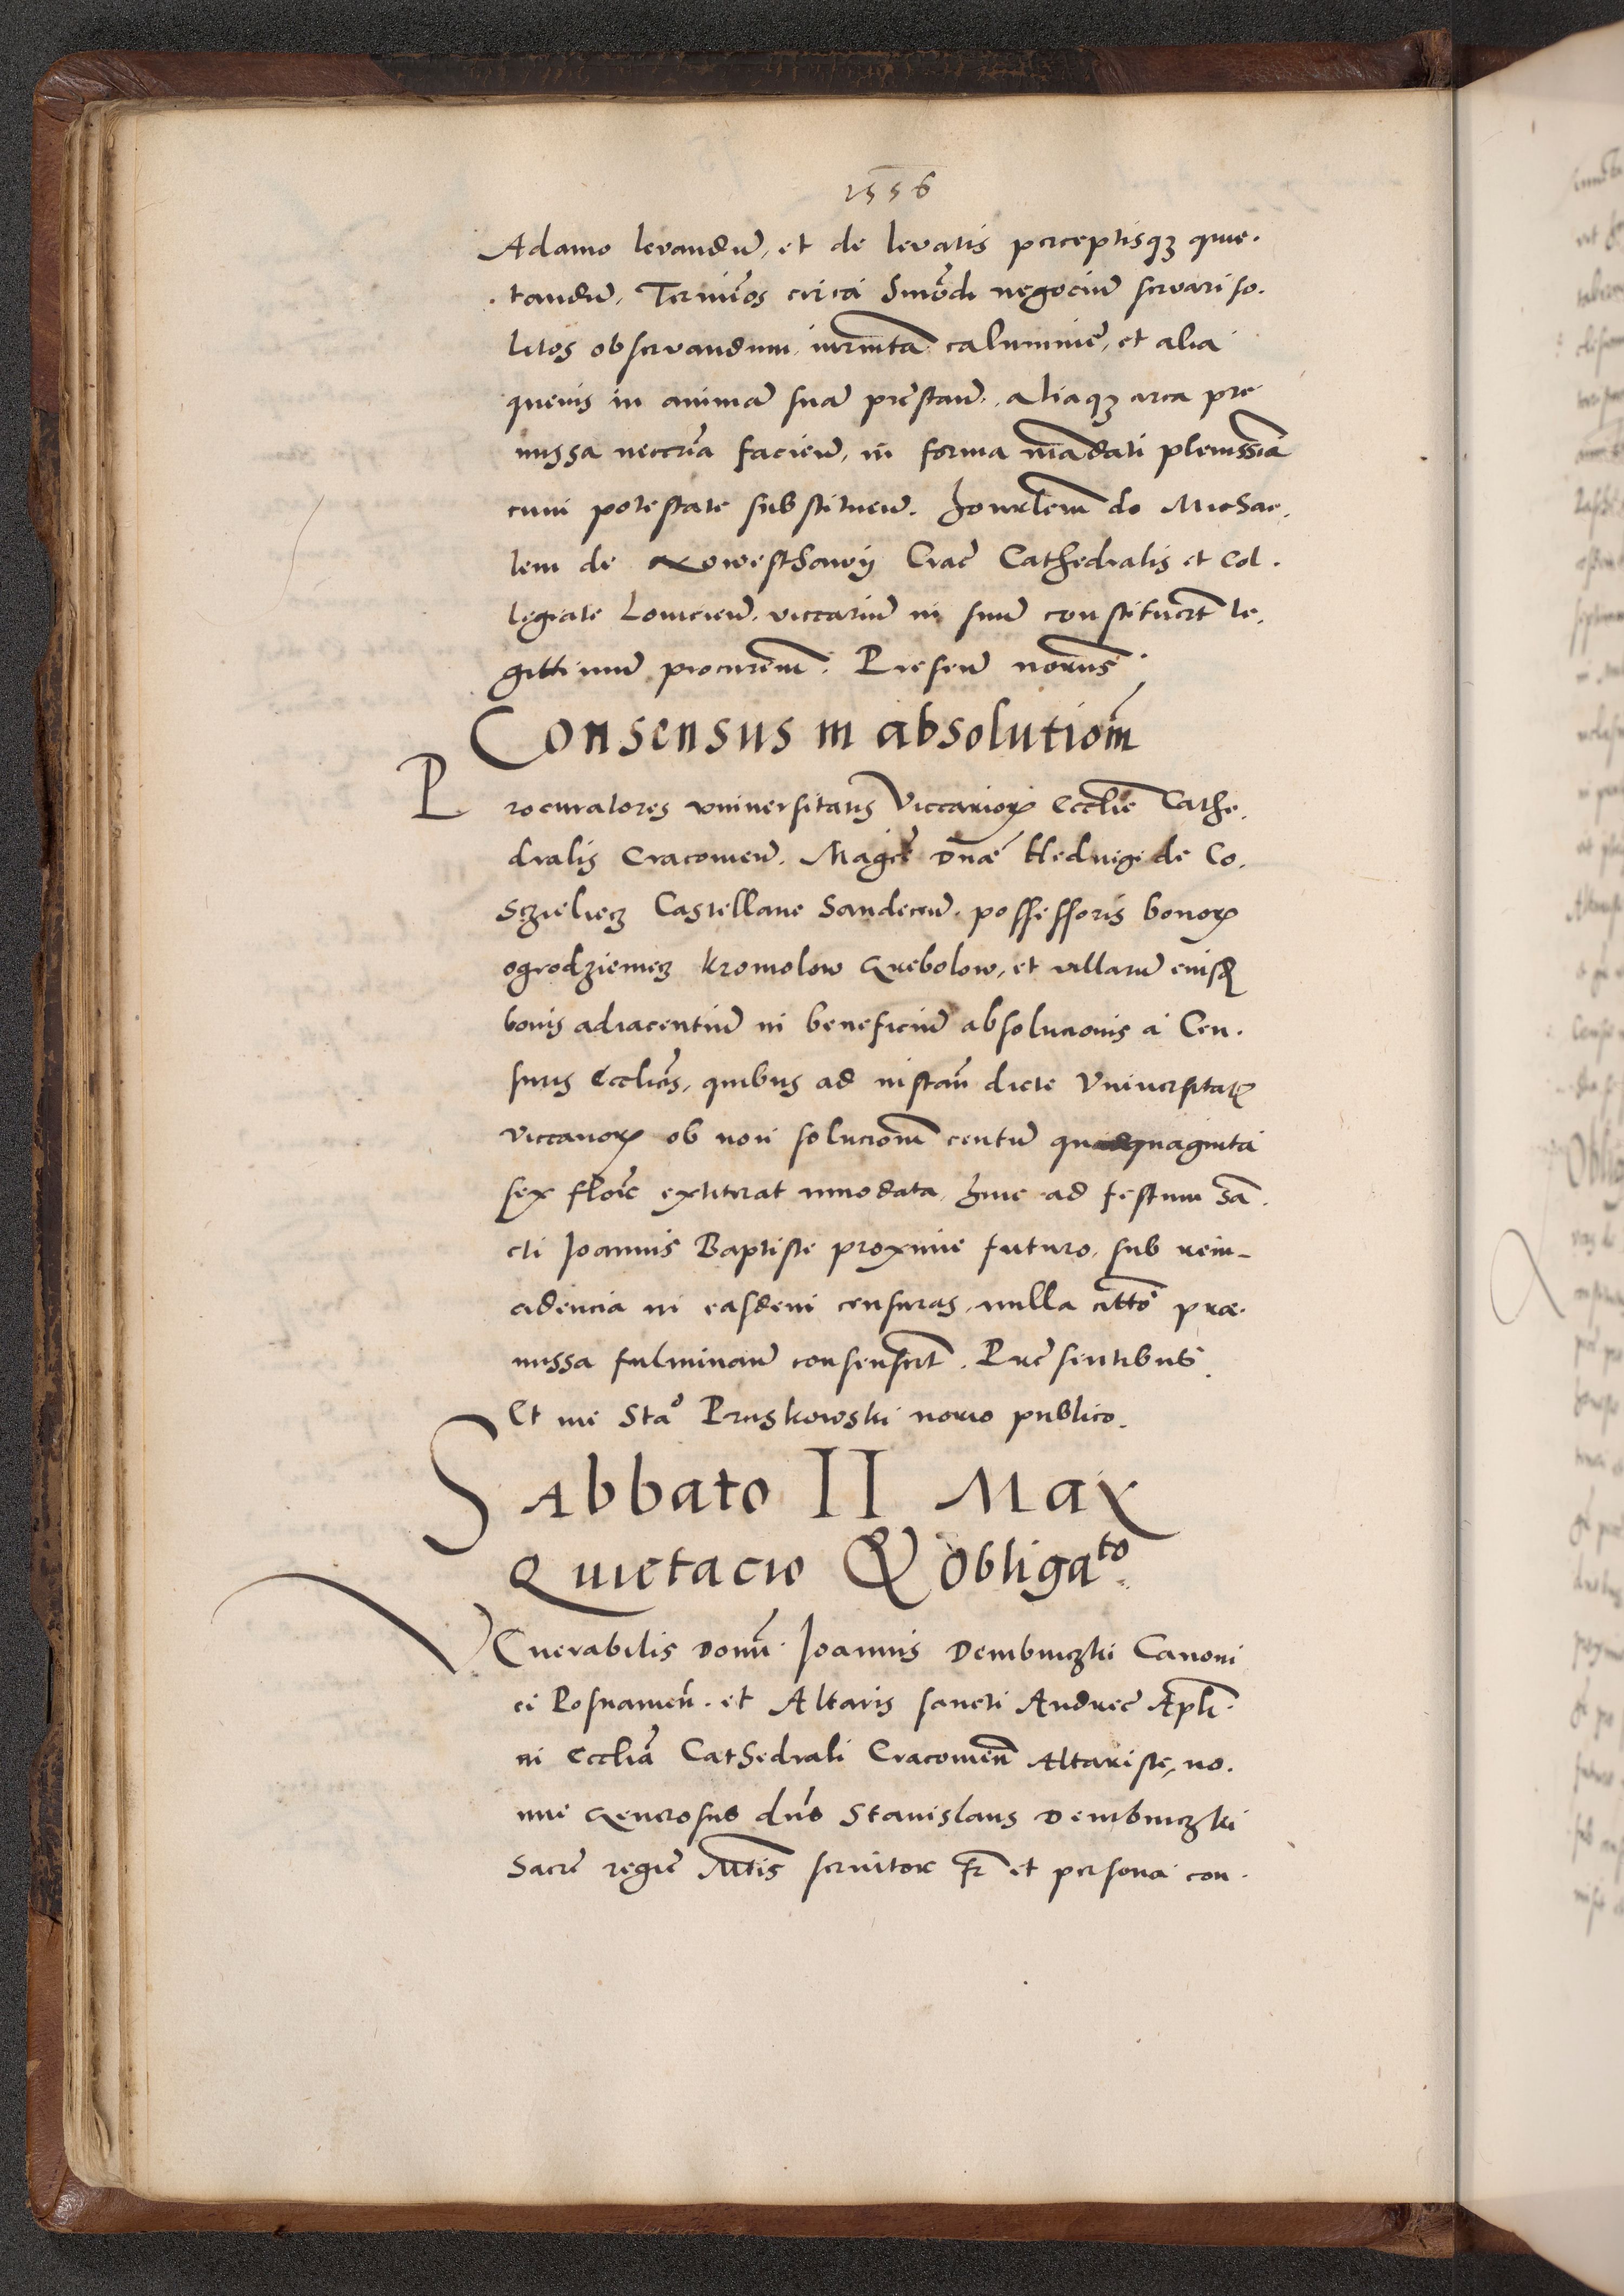 1556
Adamo levandũ, et de levatis perceptisqꝫ quie.
tandũ, Termĩos circa hmõdi negociũ servari so.
litos observandum, iurmta calumnie, et alia
quevis in animã suã prestanđ. aliaqꝫ circa pre
missa neccria faciend, in forma mãdati plenissia
cum potestate substituend. honorlem do Michae.
lem de Crac̃ Cathedralis et Col.
legiate Lovicien. viccariũ in suũ constituert le.
gittimũ procurem. Presen norus
Consensus in absolutiom̃
Procuratores vniversitatis Viccarioꝝ Ecclie Cathe.
dralis Cracovien. Magce Dnae Hedvigi de Co.
Sczieliecz Castellane Sandecen. possessoris bonoꝝ
ogrodzieniecz kromolow Grebolow, et villarũ eiusdꝫ
bonis adiacentiũ in beneficiũ absolucionis a Cen.
suris Ecclicis, quibus ad instañ dicte Vniversitatꝭ
viccarioꝝ ob non solucionem centũ quadraginta
sex florc extiterat innodata, hinc ad festum Sã
cti Joannis Baptiste proxime futuro, sub rein-
cidencia in easdem censuras, nulla citto prae.
missa fulminand consensert. Presentibus.
Et me Stao Pruskowski norio publico.
Sabbato II Maÿ
Quietacio & Obligato
Venerabilis Domi Joannis Dembinczki Canoni
ci Posnamen. et Altaris sancti Andree Apli.
in Ecclia Cathedrali Cracovien Altariste, no.
mine Generosus dns Stanislaus Dembinczki
Sacre regie Mtis servitor fr et persona con.